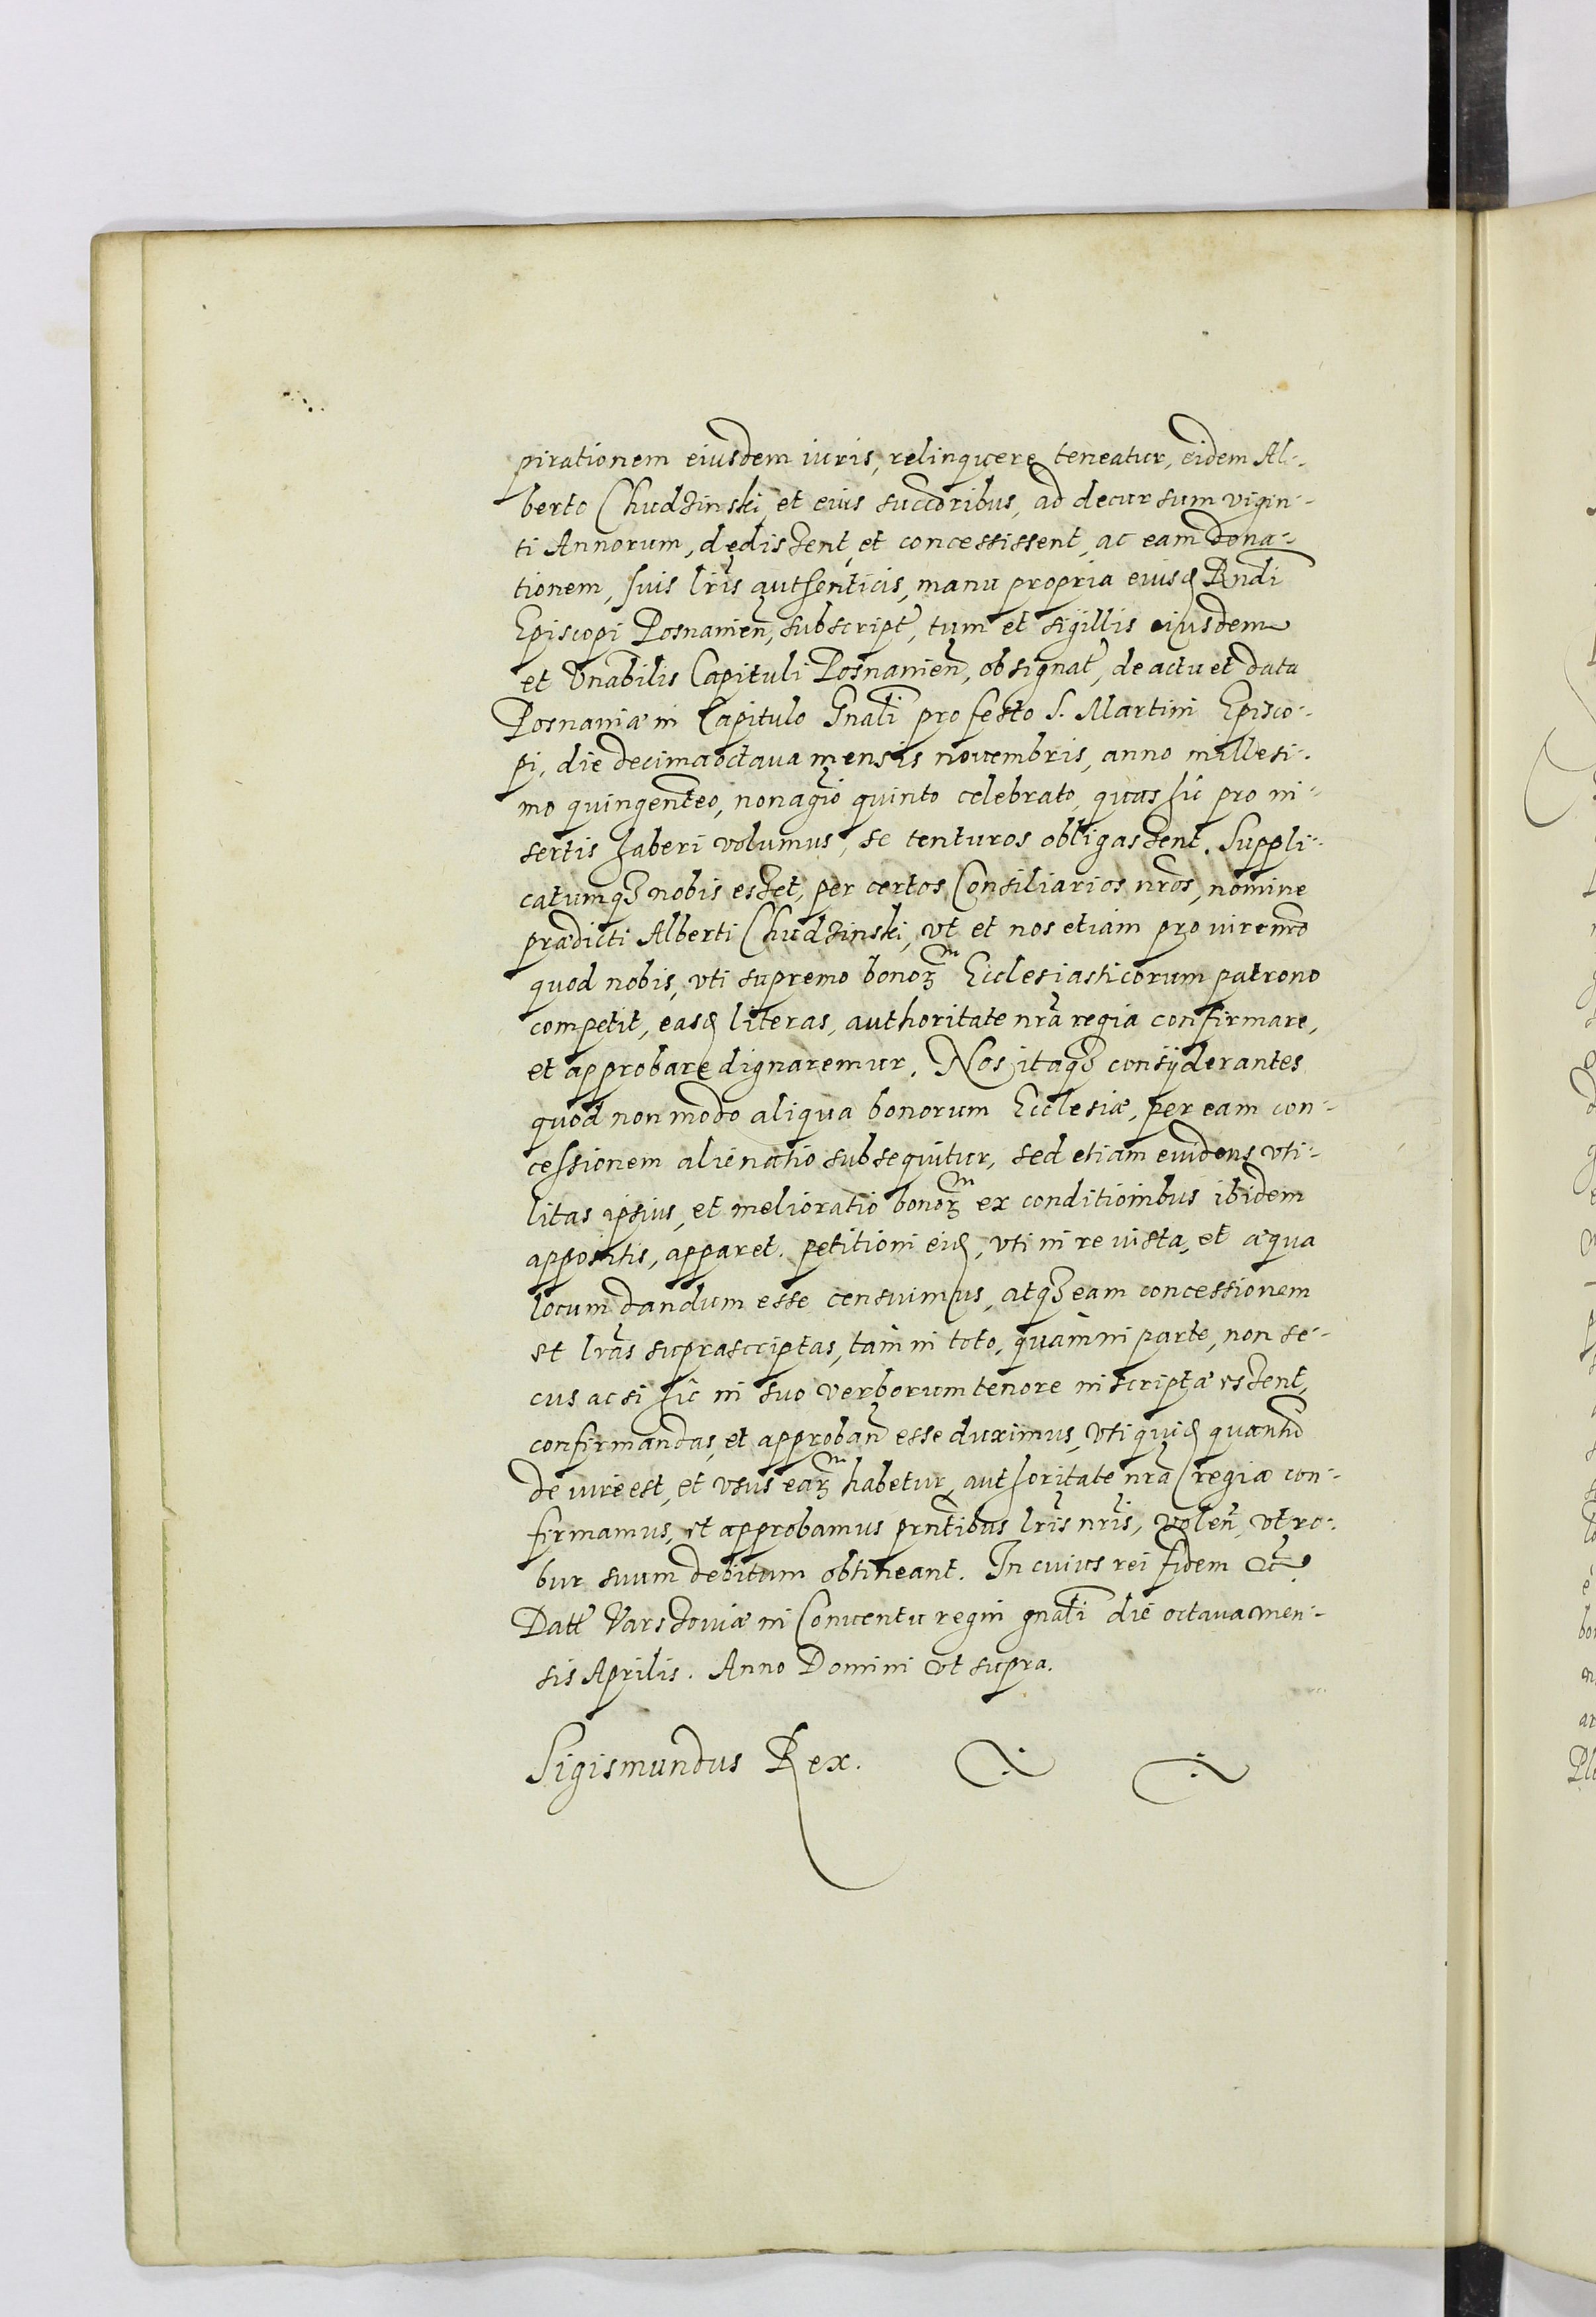 pirationem eiusdem iuris, relinquere teneatur, eidem Al-
berto Chudzinski, et eius succoribus, ad decursum vigin-
ti Annorum, dedissent, et concessissent, ac eam dona-
tionem, suis lris authenticis, manu propria eiusd Rndi
Episcopi Posnanien, subscript, tum et sigillis eiusdem
et Vnabilis Capituli Posnanien, obsignat, de actu et data
Posnaniæ in Capitulo Gnali pro festo S. Martini Episco-
pi, die decima octava mensis novembris, anno millesi-
mo quingenteo, nonagio quinto celebrato, quas hic pro in-
sertis haberi volumus, se tenturos obligassent. Suppli-
catumqz nobis esset, per certos Consiliarios nros, nomine
prædicti Alberti Chudzinski, vt et nos etiam pro iure nro
quod nobis, vti supremo bonor Ecclesiasticorum patrono
competit, easd literas, authoritate nra regia confirmare,
et approbare dignaremur. Nos itaqz consyderantes
quod non modo aliqua bonorum Ecclesiæ, per eam con-
cessionem alienatio subsequitur, sed etiam euidens vti-
litas ipsius, et melioratio bonor ex conditioinbus ibidem
appositis, apparet. petitioni eiusd, vti in re iusta, et æqua
locum dandum esse censuimus, atqz eam concessionem
et lras suprascriptas, tam in toto, quam in parte, non se-
cus ac si hic in suo verborum tenore inscriptæ essent,
confirmandas, et approban esse duximus, vti quid quantu
de iure est, et vsus ear habetur, authoritate nra regia con-
firmamus, et approbamus prntibus lris nris, volen, vt ro-
bur suum debitum obtineant. In cuius rei fidem &c
Datt Varssoviæ in Conuentu regni gnali die octaua men-
sis Aprilis. Anno Domini vt supra.
Sigismundus Rex.